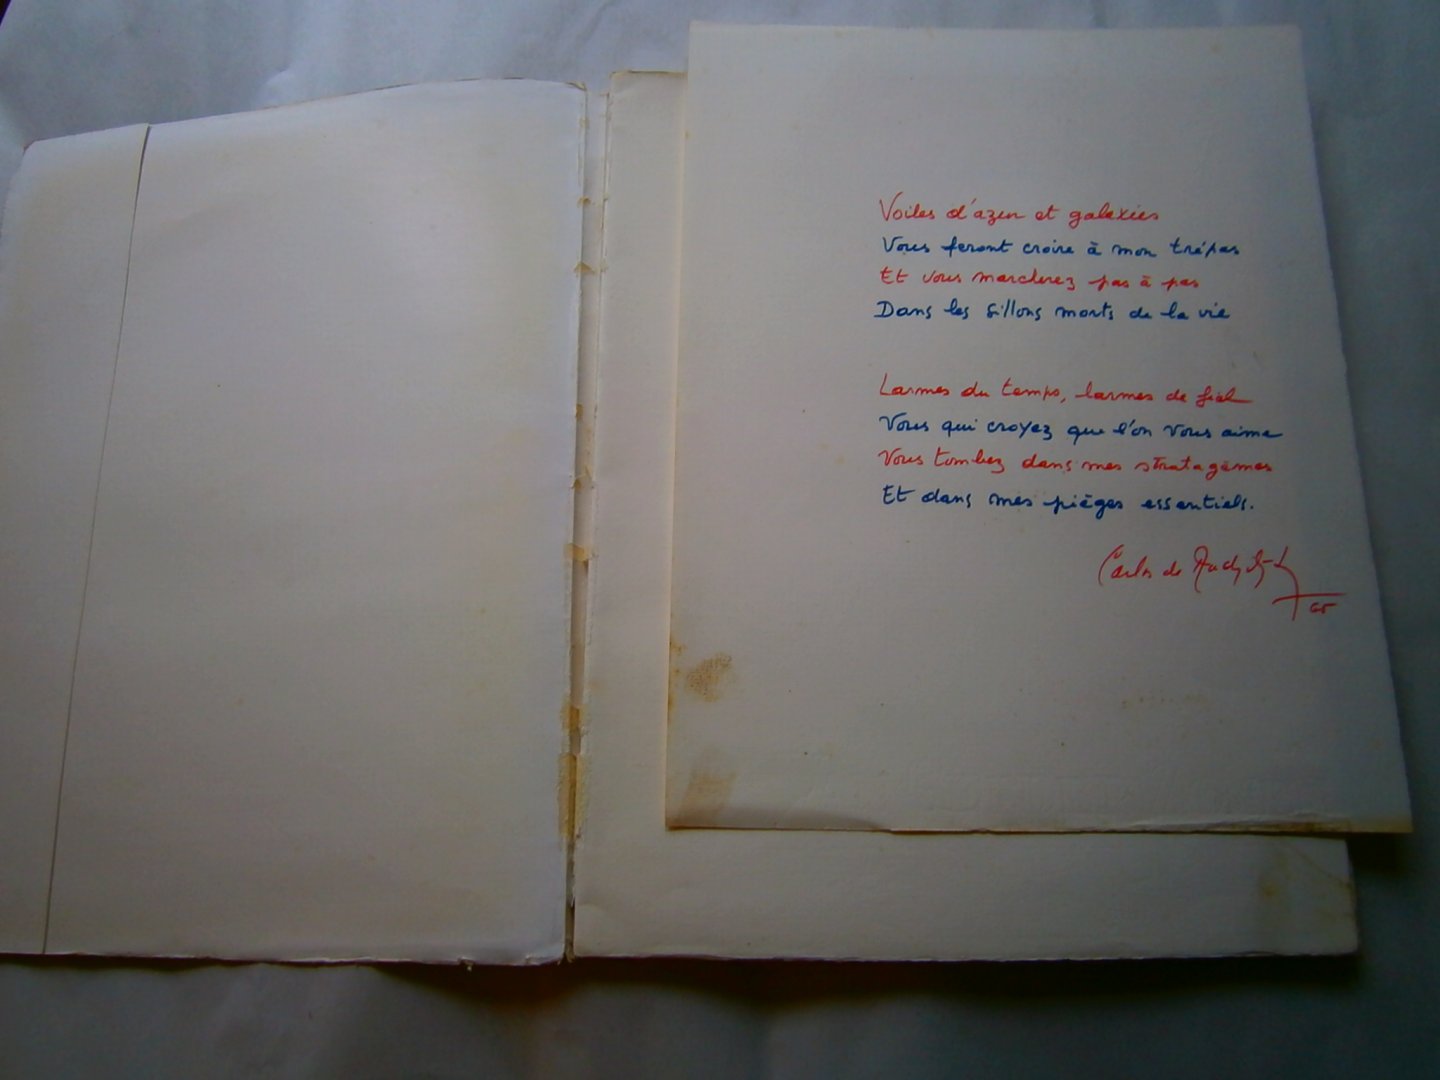 Voiles d'azur et galaxies
Vous feront croire à mon trépas
Et vous marcherez pas à pas
Dans les sillons morts de la vie
Larmes du temps, larmes de fiel
Vous qui croyez que l'on vous aime
Vous tombez dans mes stratagèmes
Et dans mes pièges essentiels.
Carlos de
65